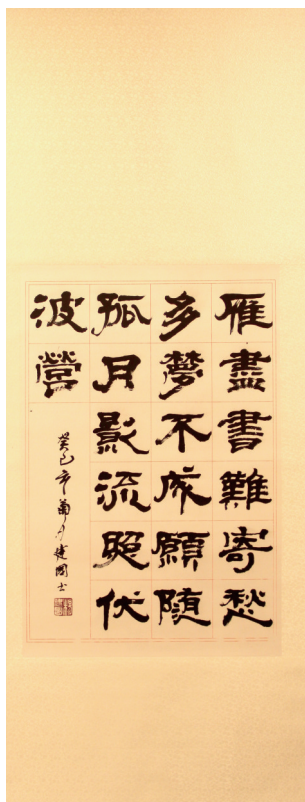 雁盡書難寄愁
多夢不成願隨
孤月影流照伏
波營
癸巳年菊月建國